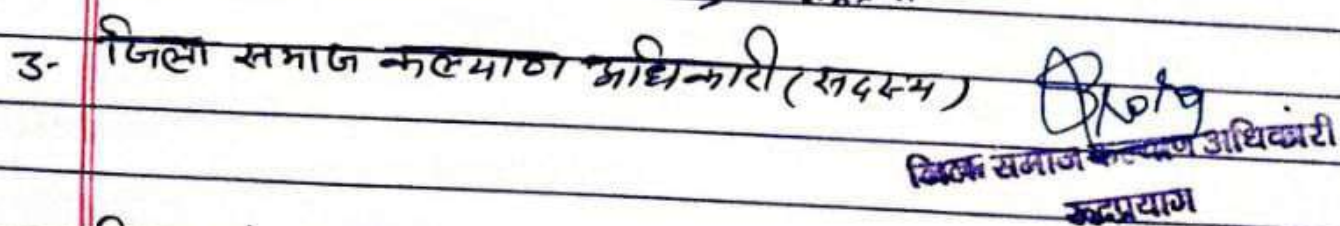 3- जिला समाज कल्याण अधिकारी (सदस्य)
जिला समाज कल्याण अधिकारी
रूद्रप्रयाग